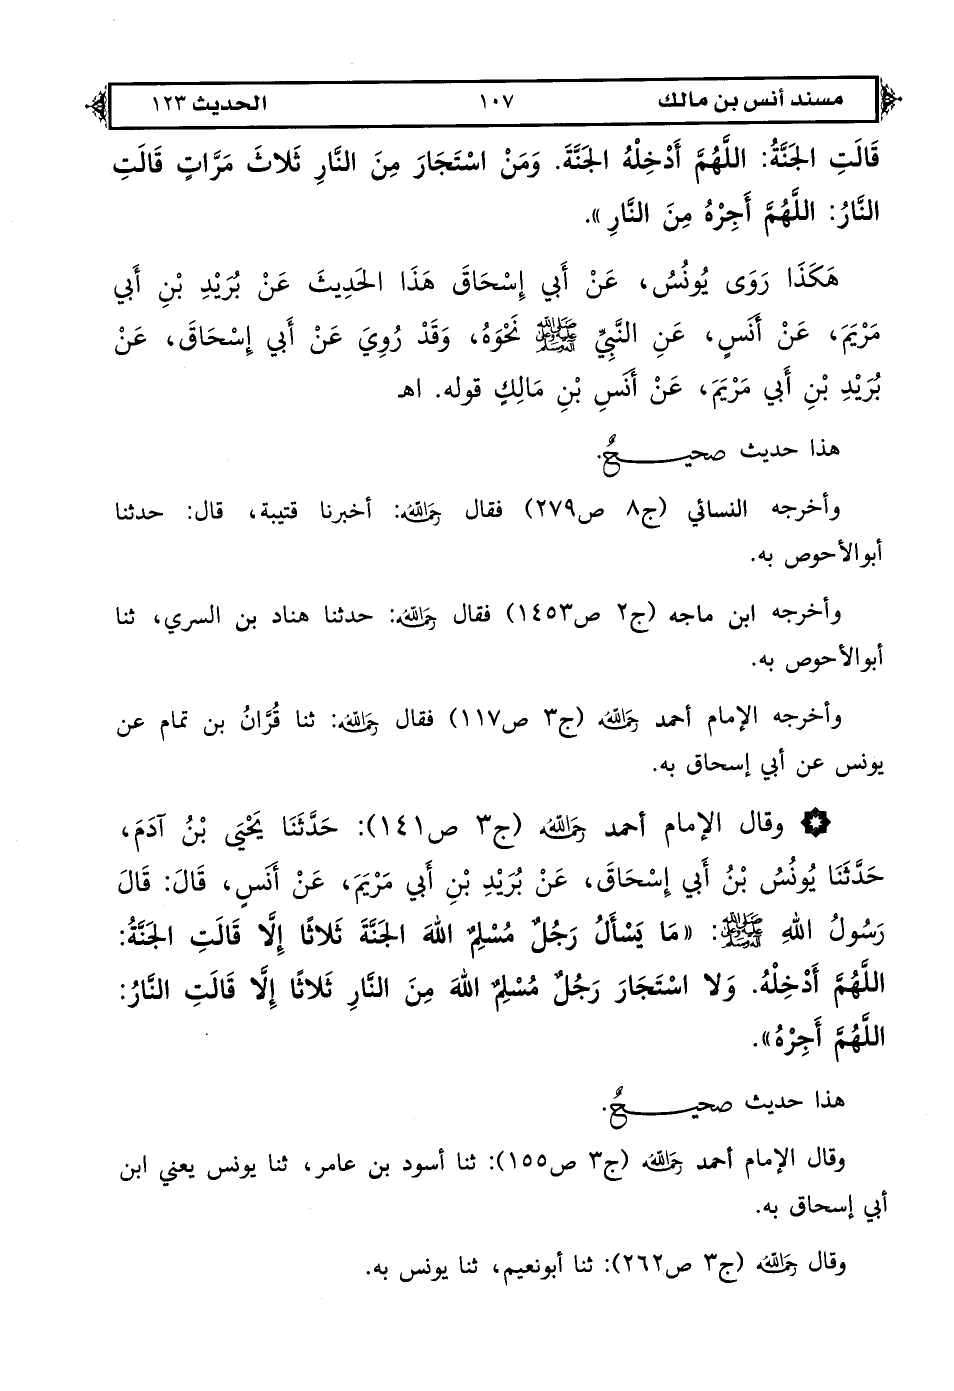 مسند أنس بن مالك ١٠٧ الحديث ١٢٣
قَالَتِ الجَنَّةُ: اللَّهُمَّ أَدْخِلْهُ الجَنَّةَ. وَمَنْ اسْتَجَارَ مِنَ النَّارِ ثَلاثَ مَرَّاتٍ قَالَتِ
النَّارُ: اللَّهُمَّ أَجِرْهُ مِنَ النَّارِ».
هَكَذَا رَوَى يُونُسُ، عَنْ أَبِي إِسْحَاقَ هَذَا الحَدِيثَ عَنْ بُرَيْدِ بْنِ أَبِي
مَرْيَمَ، عَنْ أَنَسٍ، عَنِ النَّبِيِّ ﷺ نَحْوَهُ، وَقَدْ رُوِيَ عَنْ أَبِي إِسْحَاقَ، عَنْ
بُرَيْدِ بْنِ أَبِي مَرْيَمَ، عَنْ أَنَسِ بْنِ مَالِكٍ قوله. اهـ
هذا حديث صحيــــــحٌ.
وأخرجه النسائي (ج٨ ص٢٧٩) فقال رحمه الله: أخبرنا قتيبة، قال: حدثنا
أبوالأحوص به.
وأخرجه ابن ماجه (ج٢ ص١٤٥٣) فقال رحمه الله: حدثنا هناد بن السري، ثنا
أبوالأحوص به.
وأخرجه الإمام أحمد رحمه الله (ج٣ ص١١٧) فقال رحمه الله: ثنا قُرَّانُ بن تمام عن
يونس عن أبي إسحاق به.
وقال الإمام أحمد رحمه الله (ج٣ ص١٤١): حَدَّثَنَا يَحْيَى بْنُ آدَمَ،
حَدَّثَنَا يُونُسُ بْنُ أَبِي إِسْحَاقَ، عَنْ بُرَيْدِ بْنِ أَبِي مَرْيَمَ، عَنْ أَنَسٍ، قَالَ: قَالَ
رَسُولُ اللهِ ﷺ: «مَا يَسْأَلُ رَجُلٌ مُسْلِمٌ اللهَ الجَنَّةَ ثَلاثًا إِلَّا قَالَتِ الجَنَّةُ:
اللَّهُمَّ أَدْخِلْهُ. وَلا اسْتَجَارَ رَجُلٌ مُسْلِمٌ اللهَ مِنَ النَّارِ ثَلاثًا إِلَّا قَالَتِ النَّارُ:
اللَّهُمَّ أَجِرْهُ».
هذا حديث صحيــــــحٌ.
وقال الإمام أحمد رحمه الله (ج٣ ص١٥٥): ثنا أسود بن عامر، ثنا يونس يعني ابن
أبي إسحاق به.
وقال رحمه الله (ج٣ ص٢٦٢): ثنا أبونعيم، ثنا يونس به.